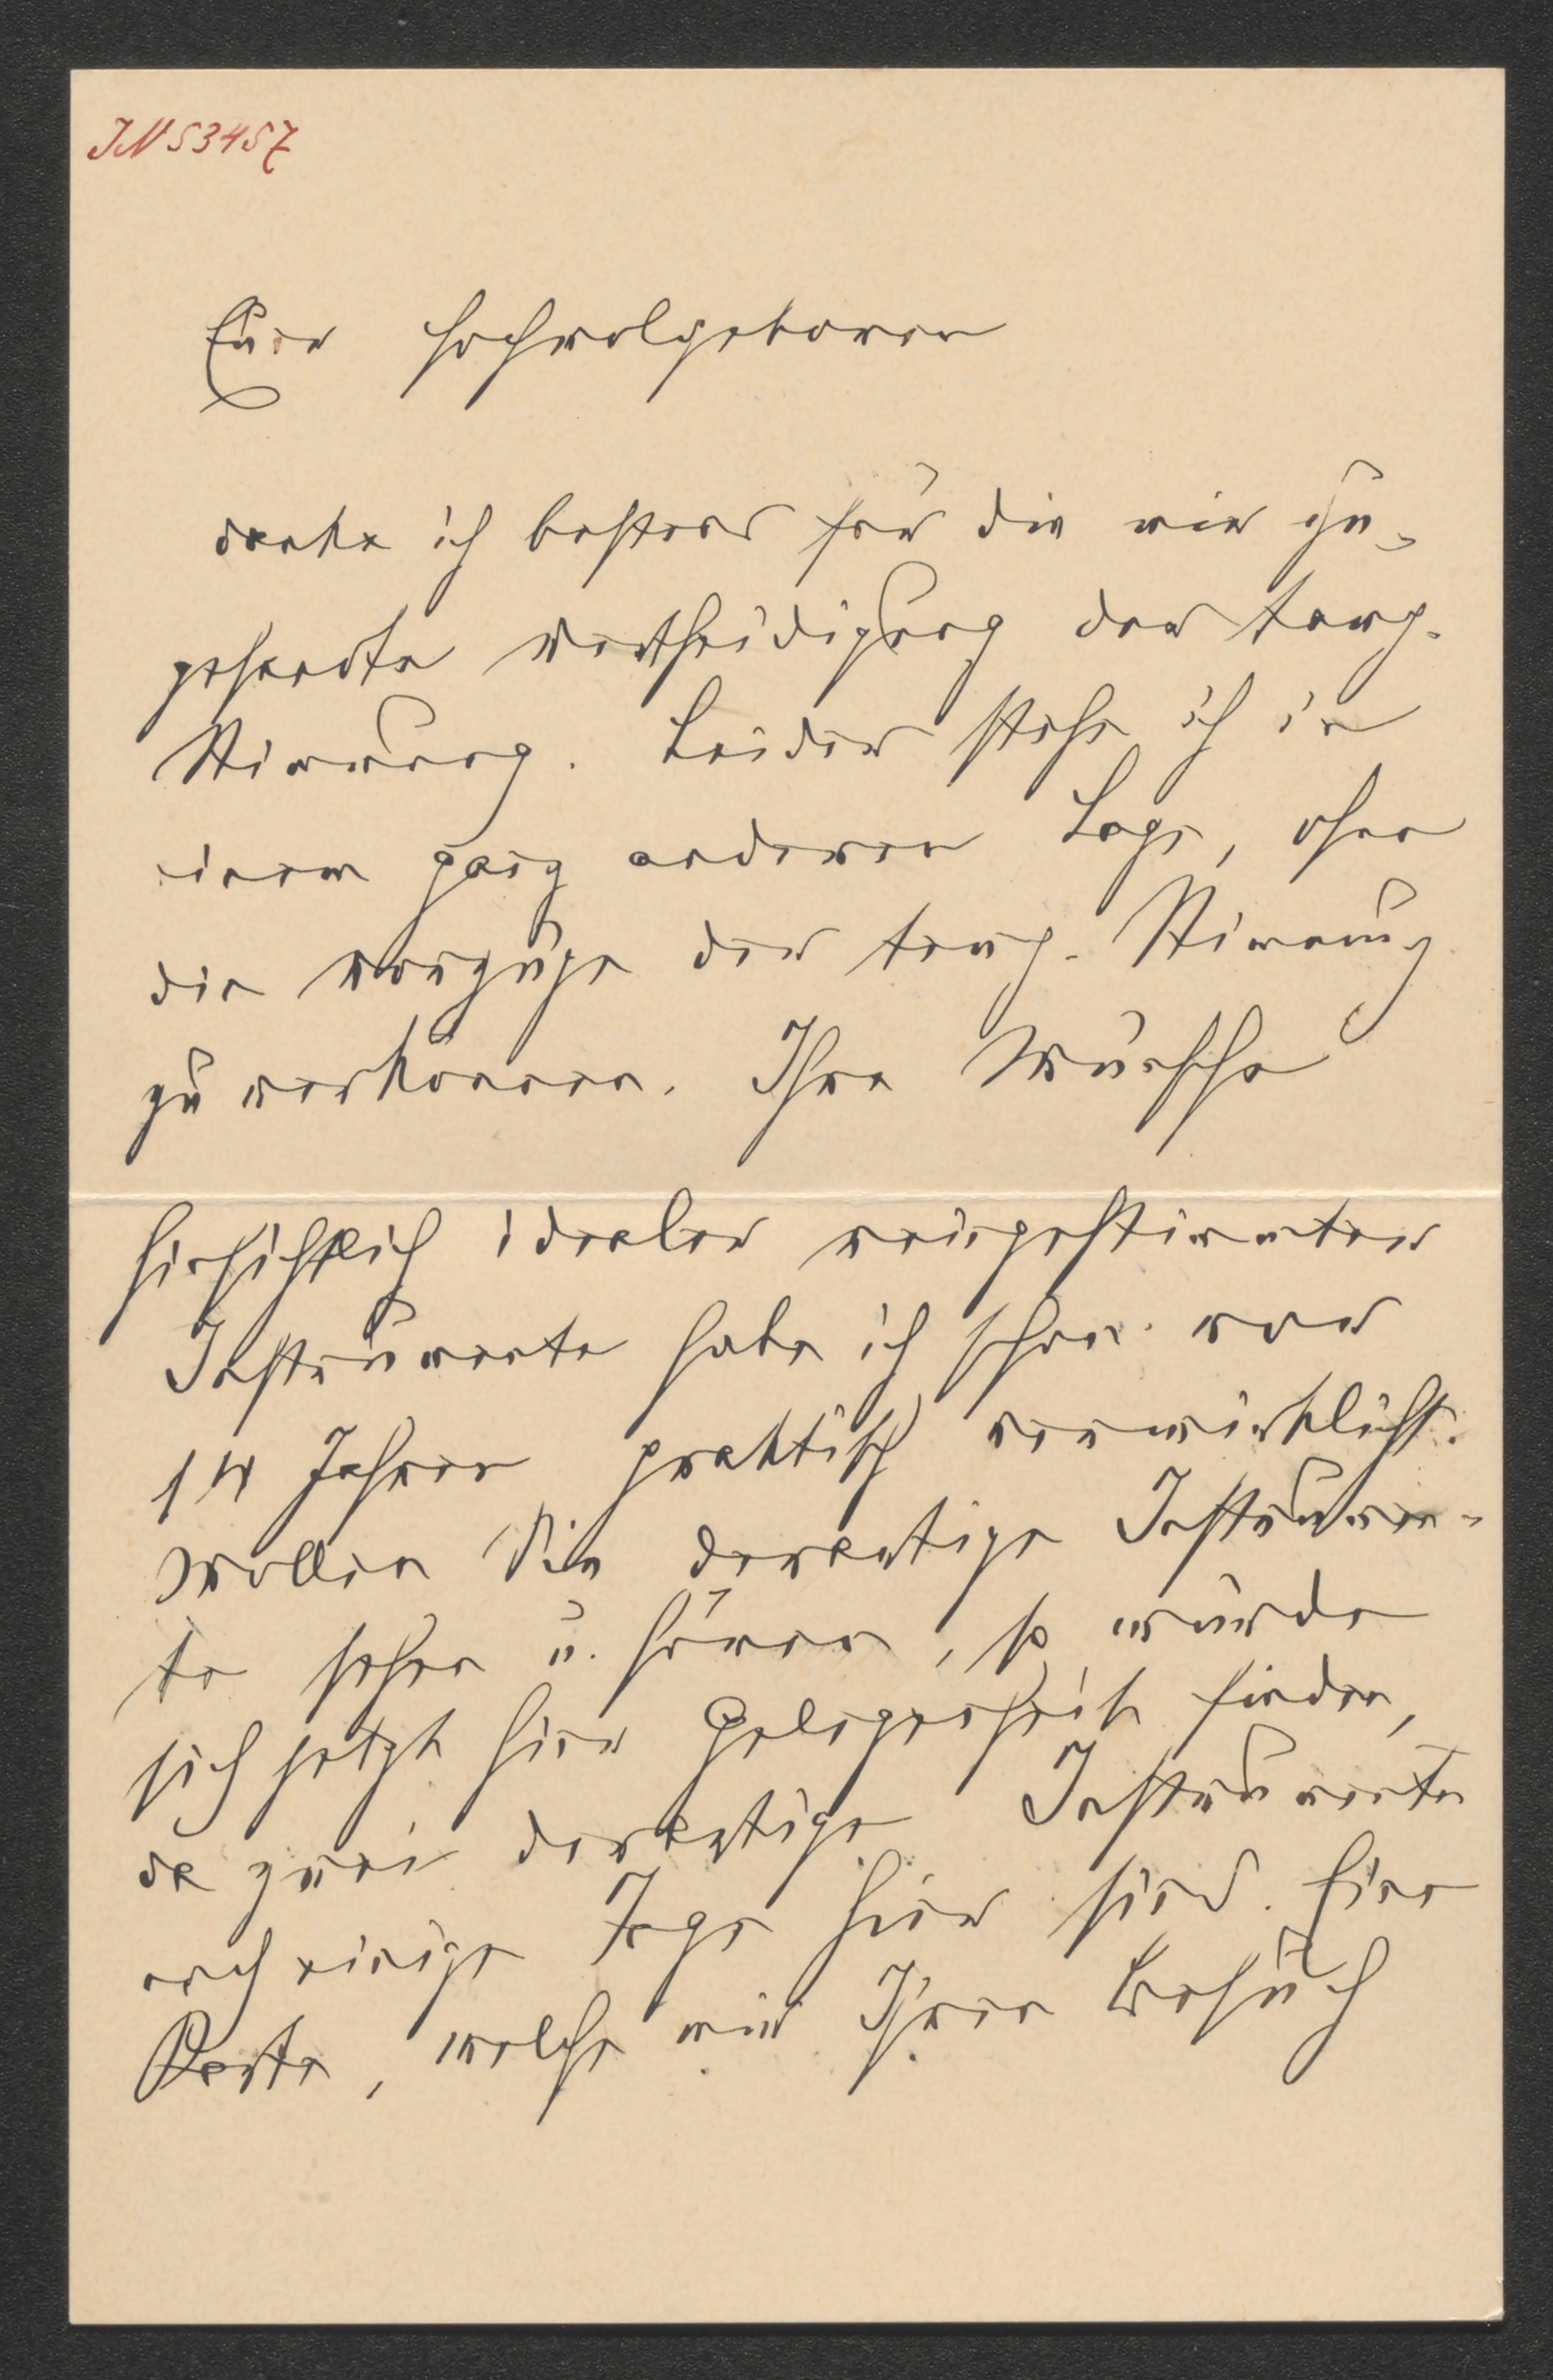 JN 53457
Euer Hochwolgeboren
danke ich bestens für die mir zu-
gesandte Vertheidigung der temp.
Stimmung. Leider stehe ich in
einem ganz anderen Lage, ohne
die Vorzüge der temp. Stimmung
zu verkennen. Ihre Wünsche
hinsichtlich idealer reingestimmter
Instrumente habe ich schon vor
14 Jahren praktisch verwirklicht.
Wollen Sie derartige Instrumen-
te sehen u. hören, so würde
sich jetzt hier Gelegenheit finden,
da zwei derartige Instrumente
noch einige Tage hier sind. Eine
Karte, welche mir Ihren Besuch